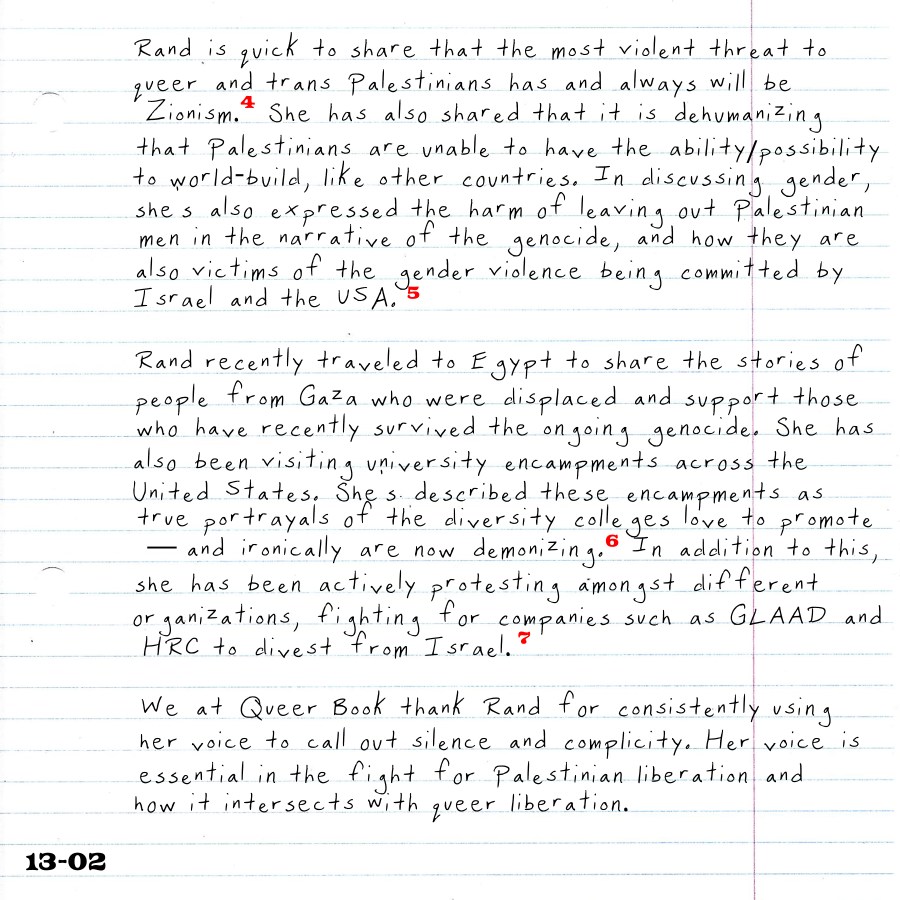 Rand is quick to share that the most violent threat to
queer and trans Palestinians has and always will be
Zionism.4 She has also shared that it is dehumanizing
that Palestinians are unable to have the ability/possibility
to world-build, like other countries. In discussing gender,
she s also expressed the harm of leaving out Palestinian
men in the narrative of the genocide, and how they are
also victims of the gender violence being committed by
Israel and the USA.5
Rand recently traveled to Egypt to share the stories of
people from Gaza who were displaced and support those
who have recently survived the ongoing genocide. She has
also been visiting university encampments across the
United States. She s described these encampments as
true portrayals of the diversity colleges love to promote
— and ironically are now demonizing.6 In addition to this,
she has been actively protesting amongst different
organizations, fighting for companies such as GLAAD and
HRC to divest from Israel.7
We at Queer Book thank Rand for consistently using
her voice to call out silence and complicity. Her voice is
essential in the fight for Palestinian liberation and
how it intersects with queer liberation.
13-02